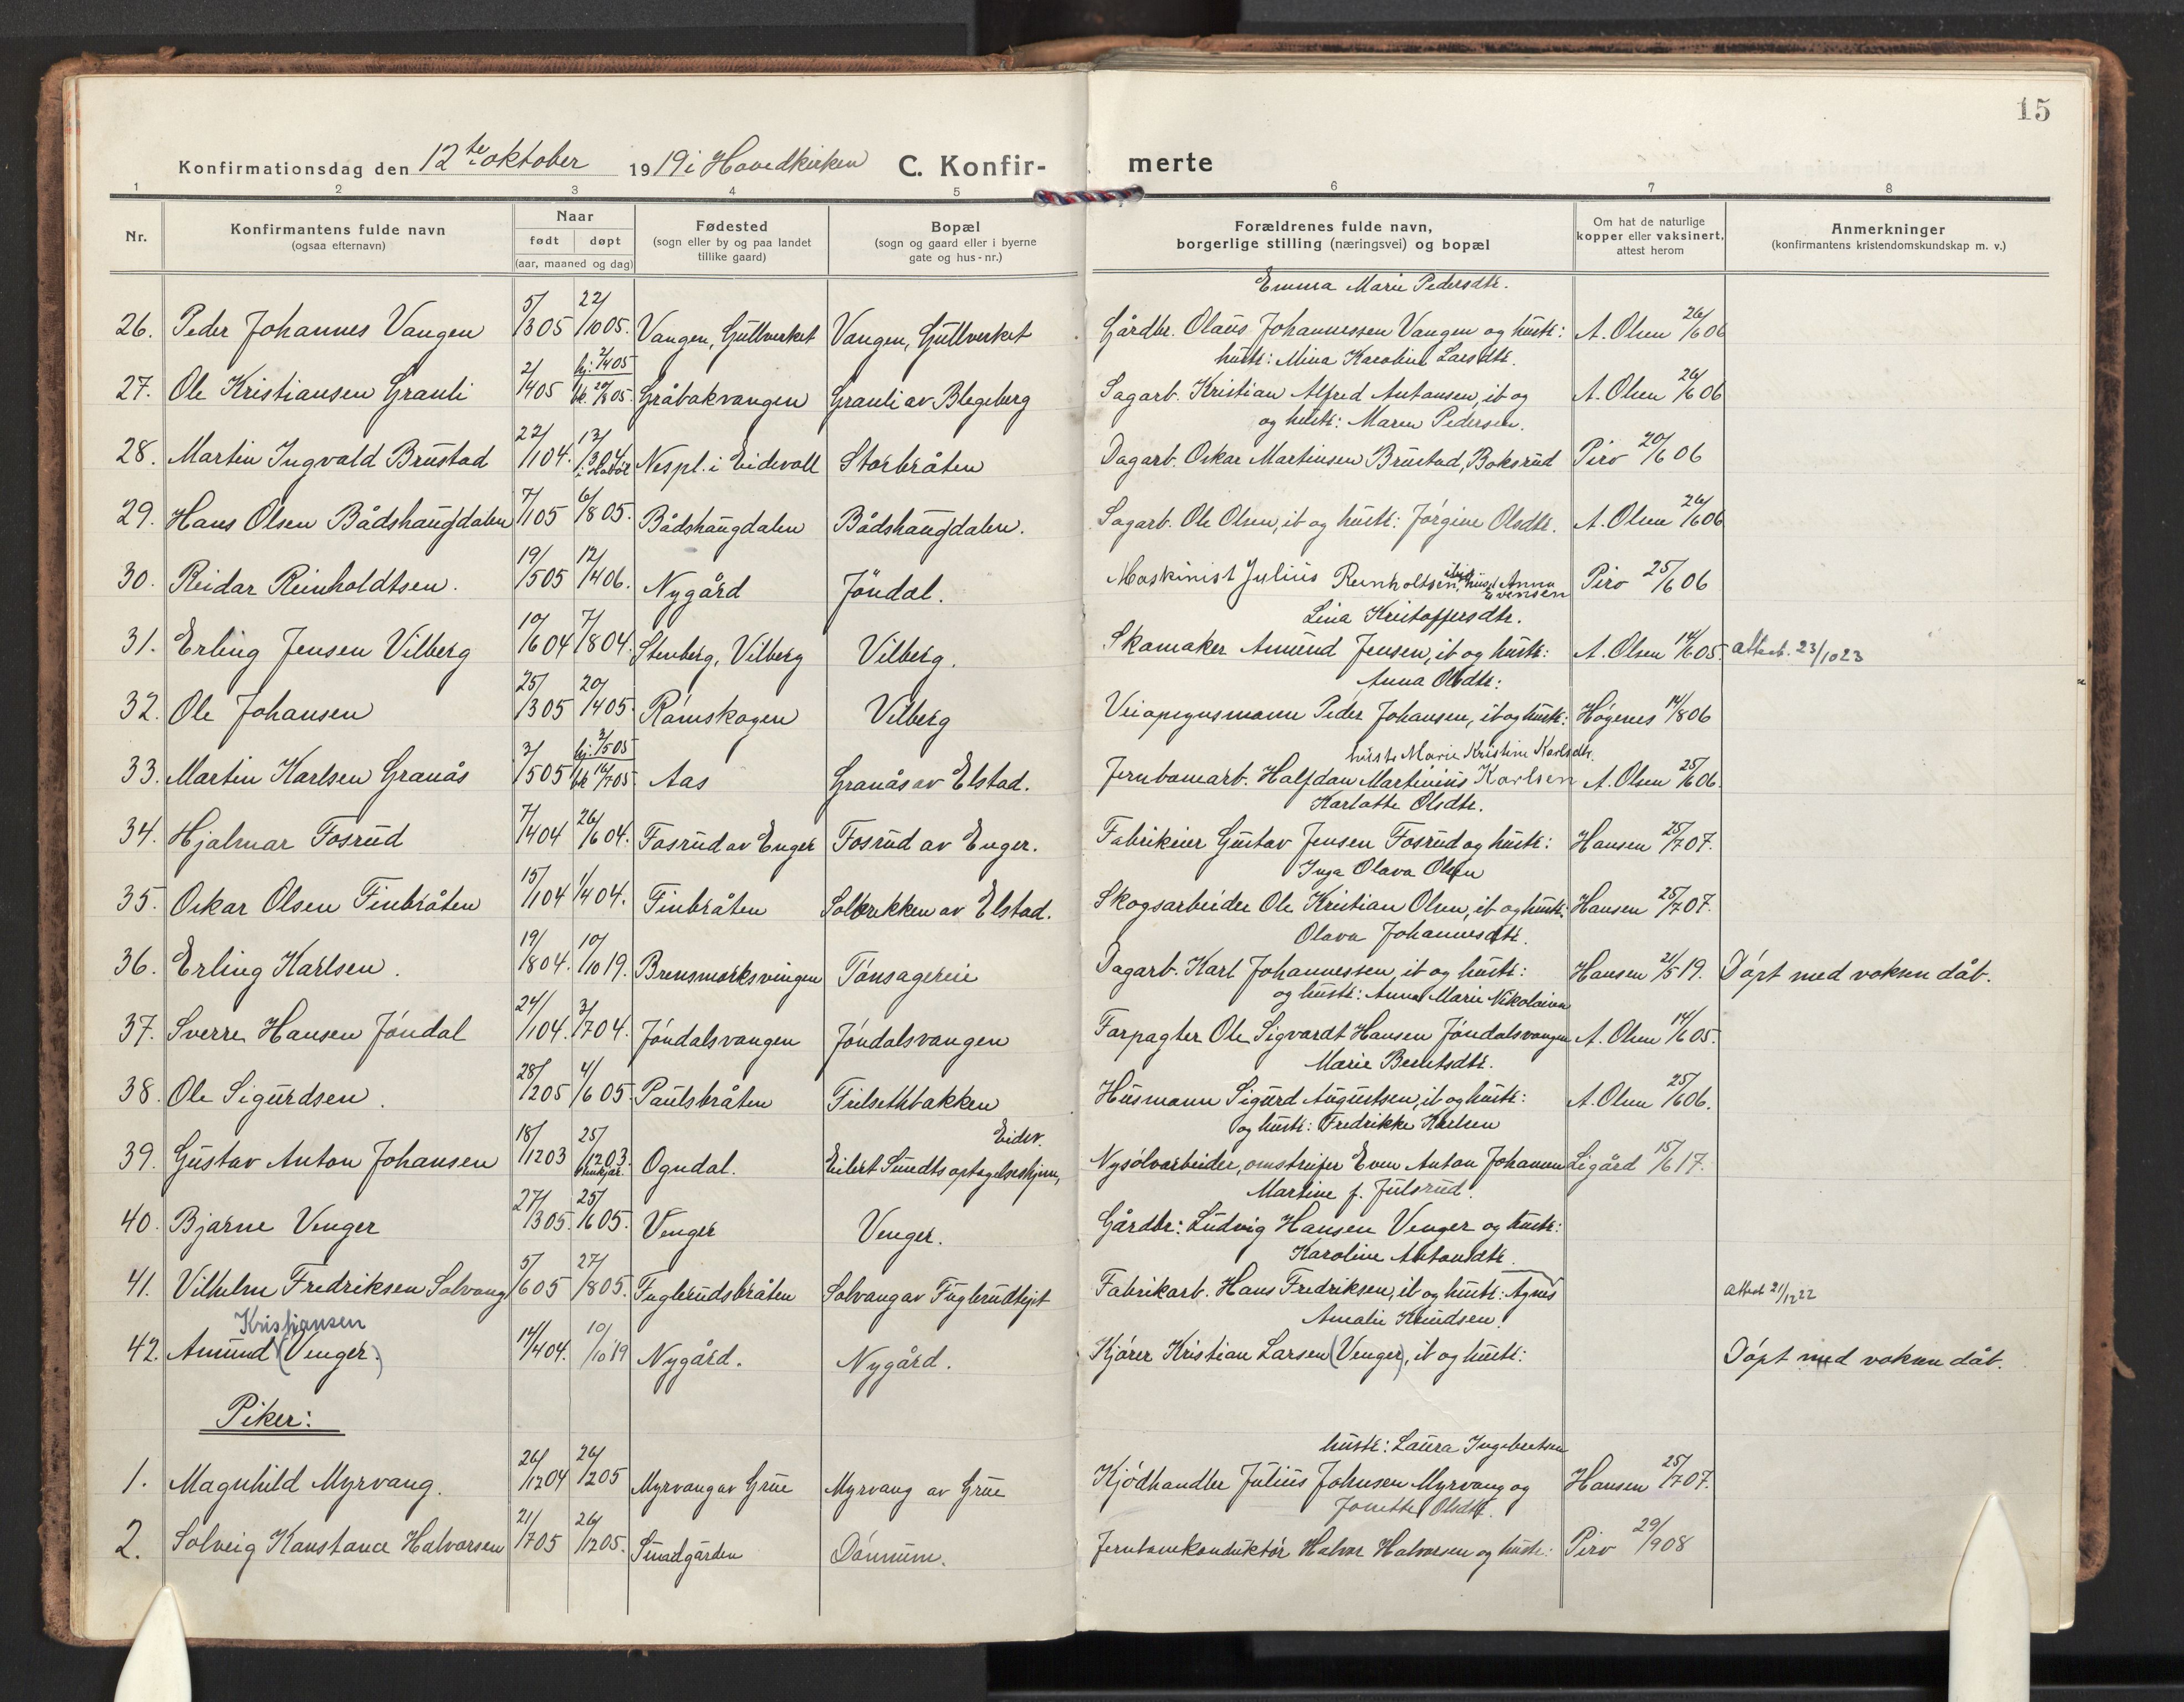 15
Konfirmationsdag den 12te oktober 1919 i Hovedkirken C. Konfir- merte
1 2 3 4 5 6 7 8
Nr. Konfirmantens fulde navn (ogsaa efternavn) Naar født døpt (aar, maaned og dag) Fødested (sogn eller by og paa landet tillike gaard) Bopæl (sogn og gaard eller i byerne gate og hus-nr.) Forældrenes fulde navn, borgerlige stilling (næringsvei) og bopæl Om hat de naturlige kopper eller vaksinert, attest herom Anmerkninger (konfirmantens kristendomskundskap m. v.)
Emma Marie Pedersdtr.
26. Peder Johannes Vangen 5/3 05 22/10 05. Vangen, Gullverket Vangen, Gullverket Gårdbr. Olaus Johannessen Vangen og hustr: A. Olsen 26/6 06
hj: 2/4 05 hustr: Mina Karoline Larsdtr.
27. Ole Kristiansen Grauli 2/4 05 Gråbakvangen Grauli av Blegeberg Sagarb. Kristian Alfred Antonsen, ib og A. Olsen 26/6 06
og hustr: Maren Pedersen.
28. Martin Ingvald Brustad 22/1 04. 13/3 04 Nespl. i Eidsvoll Storbråten Dagarb. Oskar Martinsen Brustad, Boksrud Piro 20/6 06
29. Hans Olsen Bådshaugdalen 7/1 05 6/8 05. Bådshaugdalen Bådshaugdalen. Sagarb. Ole Olsen, ib og hustr: Jørgine Olsdtr. A. Olsen 26/6 06
30. Reidar Reinholdtsen. 19/5 05 12/4 06. Nygård Jöndal. Maskinist Julius Reinholtsen, ibid hust. Anna Evensen Piro 25/6 06
Lina Kristoffersdtr.
31. Erling Jensen Vilberg 10/6 04 7/8 04. Stenberg, Vilberg Vilberg. Skomaker Amund Jensen, ib og hustr: A. Olsen 14/6 05. attest. 23/10 23
Anna Olsdtr:
32. Ole Johansen 25/3 05 20/4 05. Rømskogen Vilberg Veiopsynsmann Peder Johansen, ib og hustr: Högenes 14/8 06
hj: 3/5 05 hustr Marie Kristine Karlsdtr.
33. Martin Karlsen Granås 3/5 05 bk 16/7 05. Aas Granås av Elstad. Jernbanearb. Halfdan Martinius Karlsen A. Olsen 25/6 06.
Karlotte Olsdtr.
34. Hjalmar Fosrud 7/4 04 26/6 04. Fosrud av Enger Fosrud av Enger. Fabrikeier Gustav Jensen Fosrud og hustr: Hansen 25/7 07.
Inga Olava Olsen
35. Oskar Olsen Finbråten 15/1 04 1/4 04. Finbråten Solbrekken av Elstad. Skogsarbeider Ole Kristian Olsen, ib og hustr: Hansen 25/7 07.
Olava Johannesdtr.
36. Erling Karlsen. 19/8 04. 10/10 19. Brensmorksvingen Tönsagereie Dagarb. Karl Johannessen, ib og hustr: Hansen 21/5 19. Döpt med voksen dåb.
og hustr: Anna Marie Nikolaisen
37. Sverre Hansen Jöndal 24/1 04. 3/7 04. Jöndalsvangen Jöndalsvangen Forpagter Ole Sigvardt Hansen Jöndalsvangen A. Olsen 14/6 05.
Marie Berntsdtr.
38. Ole Sigurdsen. 28/12 05 4/6 05 Paulsbråten Frilsethbakken Husmann Sigurd Augustsen, ib og hustr: A. Olsen 25/6 06.
Eidsv. og hustr: Fredrikke Karlsen
39. Gustav Anton Johansen 18/12 03 25/12 03. Ogndal. Eilert Sundts optagelseshjem, Nysölvarbeider, omstreifer Even Anton Johansen Ligård 15/6 17.
Martine f. Julsrud.
40. Bjarne Venger 27/3 05. 25/6 05. Venger Venger. Gårdbr: Ludvig Hansen Venger og hustr:
Karoline Antonsdtr.
41. Vilhelm Fredriksen Solvang 5/6 05 27/8 05. Fuglerudsbråten Solvang av Fuglerudhejt Fabrikarb. Hans Fredriksen, ib og hustr: Agnes attest 21/12 22
Kristiansen Amalie Knudsen.
42. Amund (Venger.) 14/4 04. 10/10 19 Nygård. Nygård. Kjörer Kristian Larsen (Venger), ib og hustr: Döpt med voksen dåb.
Piker:
hustr: Laura Ingebretsen
1. Magnhild Myrvang. 26/12 04 26/12 05 Myrvang av Grue Myrvang av Grue Kjödhandler Julius Johnsen Myrvang og Hansen 25/7 07.
Jonette Olsdtr.
2. Solveig Konstance Halvorsen 21/7 05 26/12 05. Smedgården Dönnum. Jernbanekonduktör Halvor Halvorsen og hustr: Piro 29/9 08